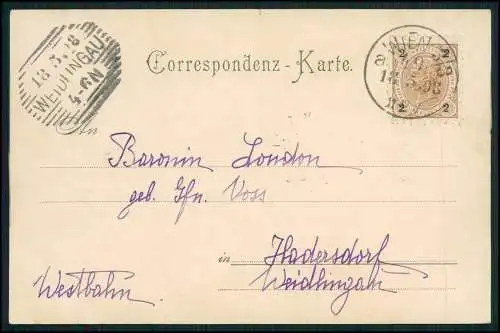 18.5.98
WEIDLINGAU
4-6N
WIEN
2 2
2 2
Correspondenz-Karte.
An
Baronin London
geb. Gfn. Voss
in Hadersdorf
Weidlingau
Westbahn